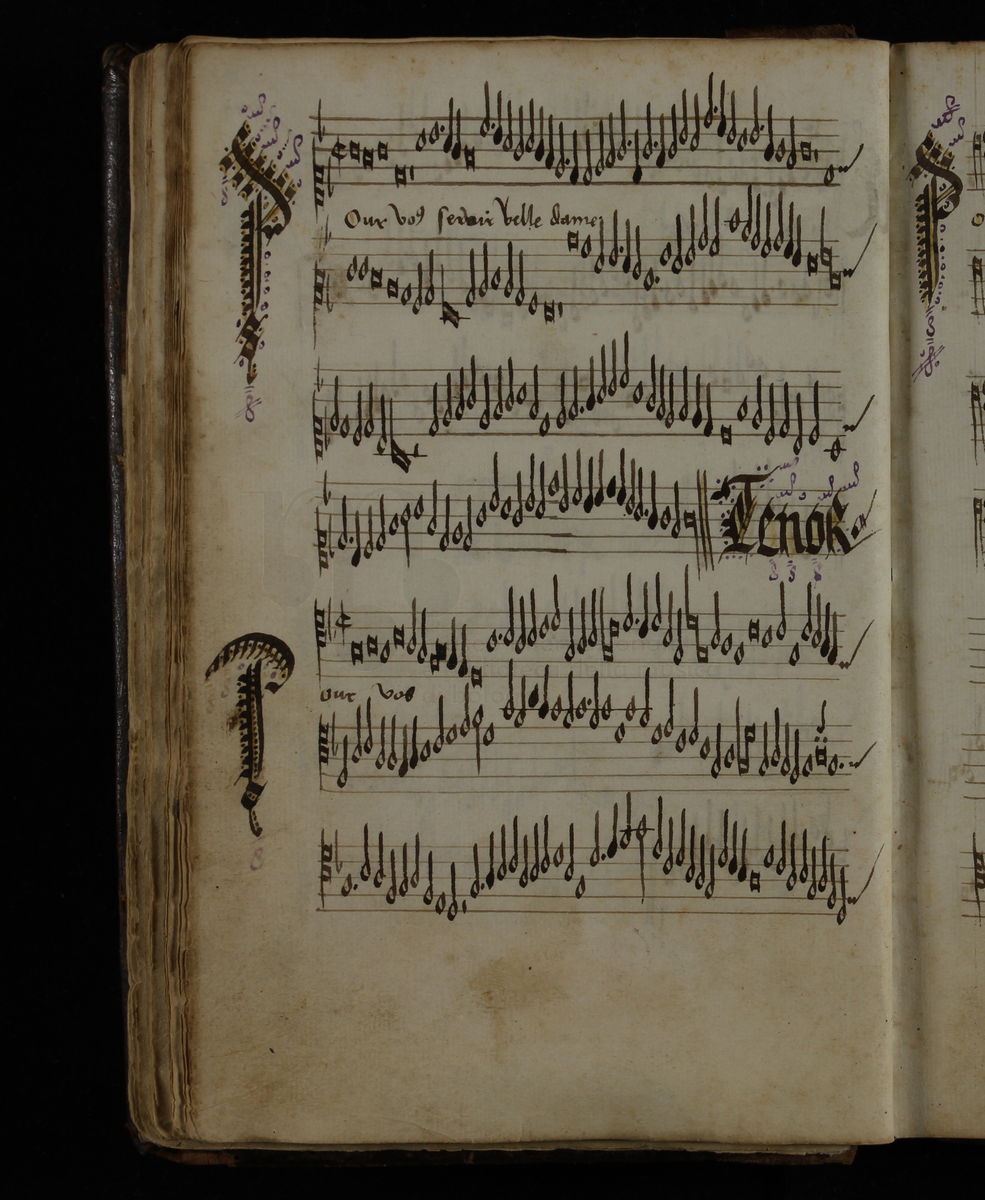 Our vos servir belle dame
Tenor
our vos